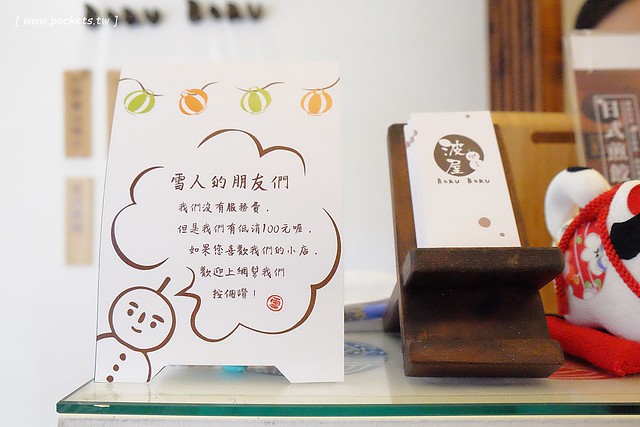 [ www.pockets.tw ]
BORU BORU
雪人的朋友們
我們沒有服務費，
但是我們有低消100元喔，
如果您喜歡我們的小店，
歡迎上網幫我們
按個讚！
雪
波屋
BORU BORU
日式煎餃